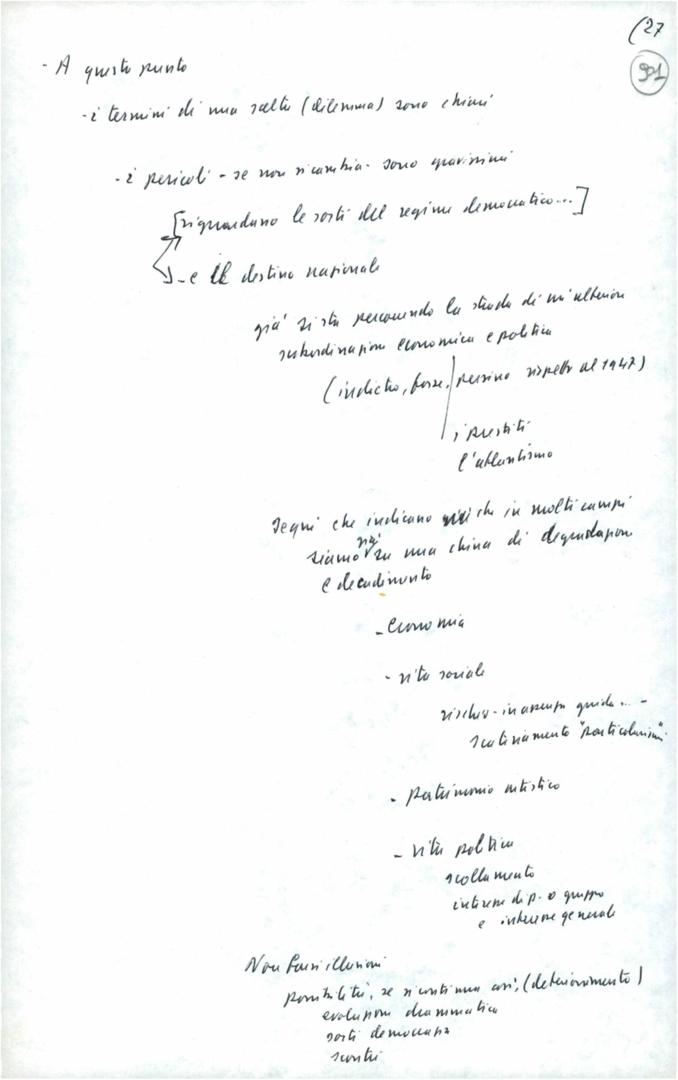 (27
901
- A questo punto
- i termini di una scelta (dilemma) sono chiari
- i pericoli - se non si cambia - sono gravissimi
[riguardano le sorti del regime democratico...]
- e il destino nazionale
già si sta percorrendo la strada di un'ulteriore
subordinazione economica e politica
(indietro, forse, persino rispetto al 1947)
i prestiti
l'atlantismo
Segni che indicano che in molti campi
siamo già su una china di degradazione
e decadimento
- economia
- vita sociale
rischio - in assenza guida... -
scatenamento "particolarismi"
- patrimonio artistico
- vita politica
scollamento
interesse di p. o gruppo
e interesse generale
Non farsi illusioni
possibilità, se si continua così, (deterioramento)
evoluzione drammatica
sorti democrazia
scontri